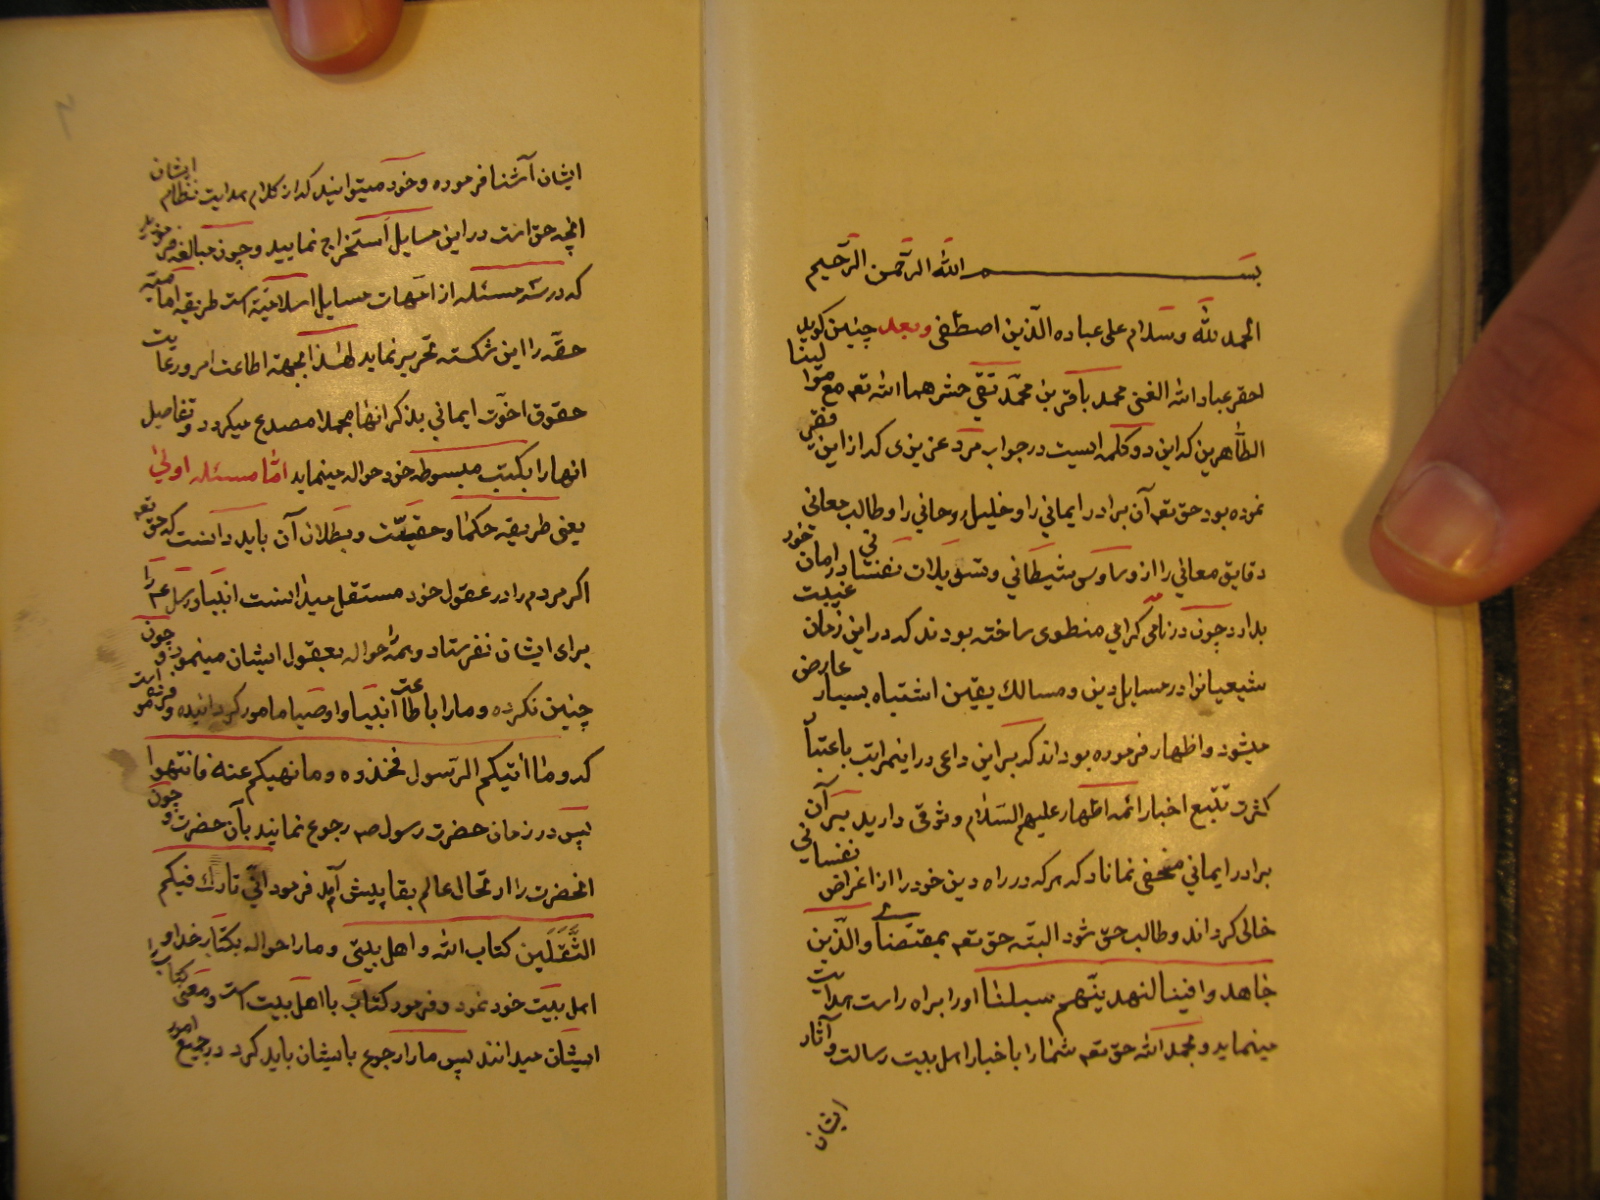 بسم الله الرّحمن الرّحیم
الحمد للّه وسلام علی عباده الّذین اصطفی وبعد چنین کوید
احقر عباد الله الغنی محمد باقر بن محمّد تقی حشرهما الله تعه مع موالینا
الطّاهرین که این دو کلمه ایست در جواب مرد عزیزی که از این فقیر
نموده بود حق تعه آن برادر ایمانی را و خلیل روحانی را و طالب معانی
دقایق معانی را از وساوس شیطانی و تسویلات نفسانی در امان خود
بدارد چون در نامهٔ کرامی منطوی ساخته بودند که در این زمان غیبت
شیعیانرا در مسایل دین و مسالك یقین اشتباه بسیار عارض
میشود و اظهار فرموده بودند که بر این داعی در اینمراتب باعتبار
کثرت تتبّع اخبار ائمه اطهار علیهم السّلام وثوقی دارید بر آن
برادر ایمانی مخفی نماناد که هرکه در راه دین خود را از اغراض نفسانی
خالی کرداند و طالب حق شود البته حق تعه بمقتضای والّذین
جاهدوا فینا لنهدینّهم سبلنا او را براه راست هدایت
مینماید و بحمد الله حق تعه شما را باخبار اهل بیت رسالت و آثار
ایشان
ایشان آشنا فرموده و خود میتوانید که از کلام هدایت نظام ایشان
آنچه حق است در این مسایل استخراج نمایید و چون مبالغه فرمودید
که در سه مسئله از امّهات مسایل اسلامیّه است طریقه امامیّه
حقّه را این شکسته تحریر نماید لهذا بجهة اطاعت امر و رعایت
حقوق اخوّت ایمانی بذکر انها مجملا مصدع میکردد و تفاصیل
انها را بکتب مبسوطه خود حواله مینماید امّا مسئله اولی
یعنی طریقه حکما و حقیّت و بطلان آن باید دانست که حق تعه
اکر مردم را در عقول خود مستقل میدانست انبیا و رسل عم را
برای ایشان نفرستاد و همه را حواله بعقول ایشان مینمود و چون
چنین نکرده و ما را باطاعت انبیا و اوصیا مامور کردانیده و فرموده است
که وما اتیکم الرّسول فخذوه وما نهیکم عنه فانتهوا
پس در زمان حضرت رسول صم رجوع نمایند بآن حضرت و چون
انحضرت را ارتحال عالم بقا پیش آمد فرمود انّی تارك فیکم
الثّقلین کتاب الله واهل بیتی و ما را حواله بکتاب خدا و
اهل بیت خود نمود و فرمود کتاب با اهل بیت است و معنی کتاب را
ایشان میدانند پس ما را رجوع بایشان باید کرد در جمیع امور